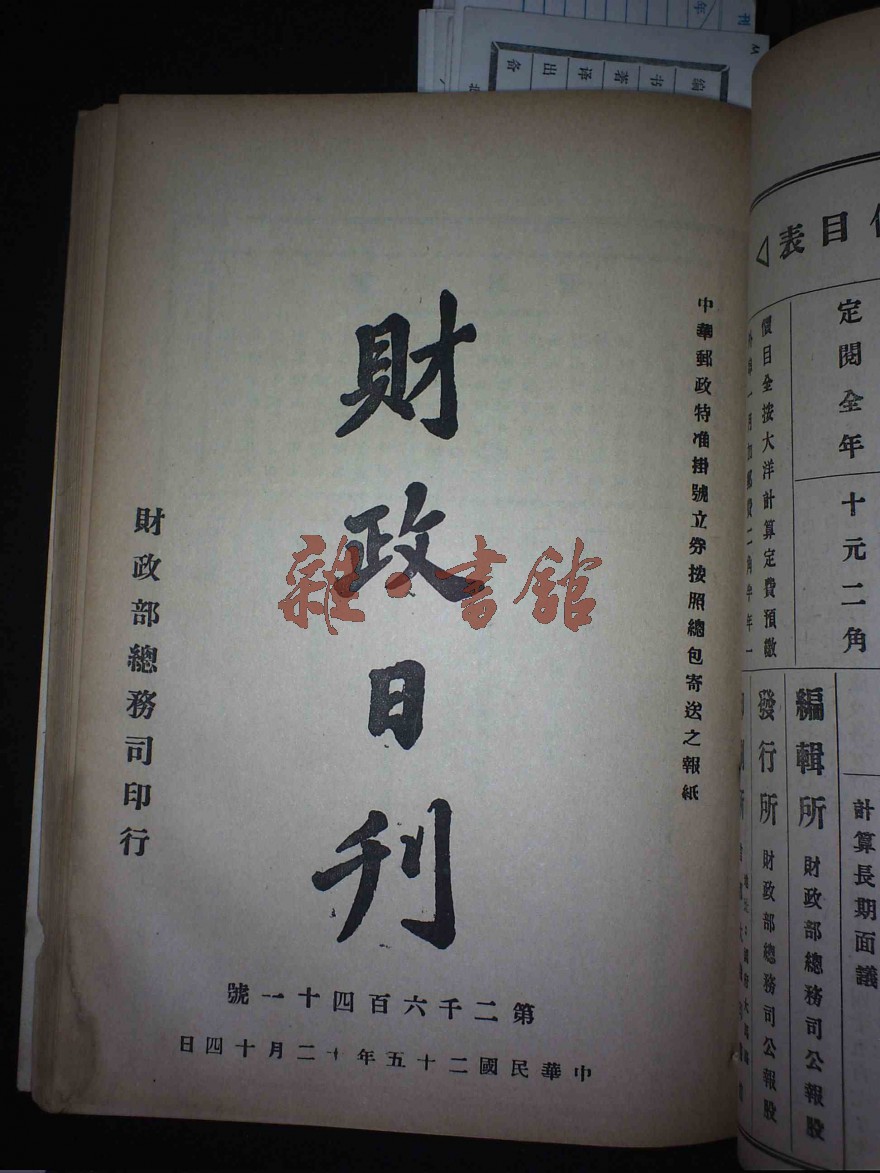 中華郵政特准掛號立券按照總包寄送之報紙
財政日刊
財政部總務司印行
第二千六百四十一號
中華民國二十五年十二月十四日
雜·書館
目表
定閱全年
十元二角
價目全按大洋計算定費預繳
計算長期面議
編輯所 財政部總務司公報股
發行所 財政部總務司公報股
编
书
著
译
出
备